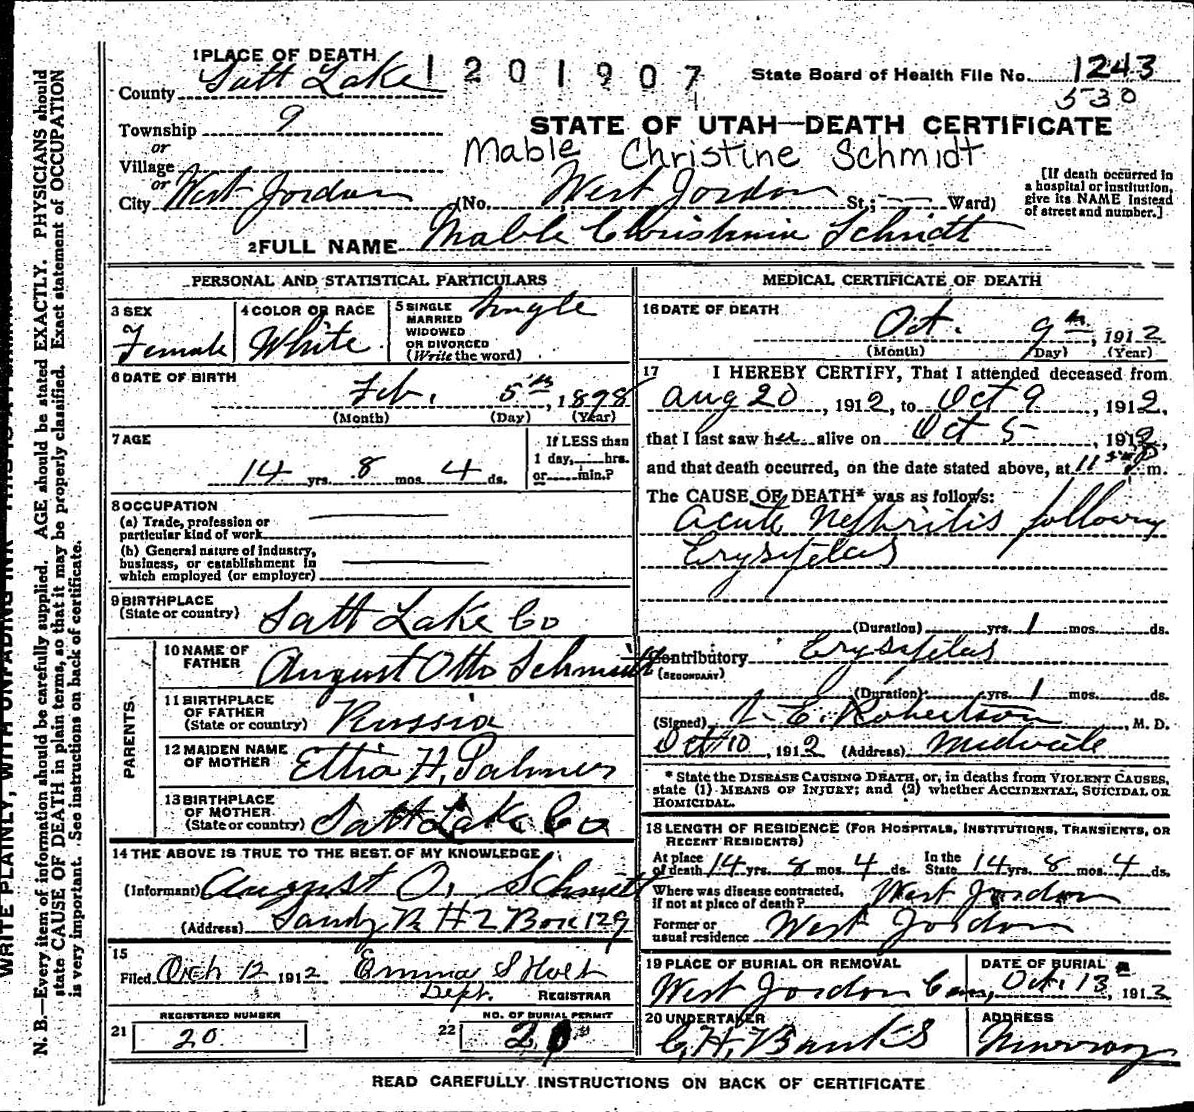 1 PLACE OF DEATH
1201907
State Board of Health File No. 1243
County Salt Lake
530
Township 9
STATE OF UTAH—DEATH CERTIFICATE
or
Mable Christine Schmidt
Village
or
City West Jordan (No. West Jordan St.; — Ward)
[If death occurred in a hospital or institution, give its NAME instead of street and number.]
2 FULL NAME Mable Christinie Schmidt
PERSONAL AND STATISTICAL PARTICULARS
3 SEX
Female
4 COLOR OR RACE
White
5 SINGLE
MARRIED
WIDOWED
OR DIVORCED
(Write the word)
Single
6 DATE OF BIRTH
Feb. 5th, 1898
(Month) (Day) (Year)
7 AGE
14 yrs. 8 mos. 4 ds.
If LESS than
1 day, hrs.
or min.?
8 OCCUPATION
(a) Trade, profession or
particular kind of work
(b) General nature of industry,
business, or establishment in
which employed (or employer)
9 BIRTHPLACE
(State or country) Salt Lake Co
PARENTS
10 NAME OF
FATHER August Otto Schmidt
11 BIRTHPLACE
OF FATHER
(State or country) Russia
12 MAIDEN NAME
OF MOTHER H. Palmer
13 BIRTHPLACE
OF MOTHER
(State or country) Salt Lake Co
14 THE ABOVE IS TRUE TO THE BEST OF MY KNOWLEDGE
(Informant) August O. Schmidt
(Address) Sandy R #2 Box 129
15
Filed Oct 12 1912 Emma S Holt
Dept. REGISTRAR
REGISTERED NUMBER
21 20
NO. OF BURIAL PERMIT
22 20
MEDICAL CERTIFICATE OF DEATH
16 DATE OF DEATH
Oct. 9th, 1912
(Month) (Day) (Year)
17 I HEREBY CERTIFY, That I attended deceased from
Aug 20, 1912, to Oct 9, 1912,
that I last saw her alive on Oct 5, 1912,
and that death occurred, on the date stated above, at 11 P m.
The CAUSE OF DEATH* was as follows:
Acute Nephritis following
Erysipelas
(Duration) yrs. 1 mos. ds.
Contributory Erysipelas
(SECONDARY)
(Duration) yrs. 1 mos. ds.
(Signed) E. Robertson, M. D.
Oct 10, 1912 (Address) Midvale
* State the DISEASE CAUSING DEATH, or, in deaths from VIOLENT CAUSES,
state (1) MEANS OF INJURY; and (2) whether ACCIDENTAL, SUICIDAL OR
HOMICIDAL.
18 LENGTH OF RESIDENCE (FOR HOSPITALS, INSTITUTIONS, TRANSIENTS, OR
RECENT RESIDENTS)
At place of death 14 yrs. 8 mos. 4 ds. In the State 14 yrs. 8 mos. 4 ds.
Where was disease contracted,
if not at place of death? West Jordan
Former or
usual residence West Jordan
19 PLACE OF BURIAL OR REMOVAL
West Jordan Cem,
DATE OF BURIAL
Oct. 13, 1912
20 UNDERTAKER
C. H. Banks
ADDRESS
Murray
READ CAREFULLY INSTRUCTIONS ON BACK OF CERTIFICATE
WRITE PLAINLY, WITH UNFADING INK—THIS IS A
N. B.—Every item of information should be carefully supplied. AGE should be stated EXACTLY. PHYSICIANS should
state CAUSE OF DEATH in plain terms, so that it may be properly classified. Exact statement of OCCUPATION
is very important. See instructions on back of certificate.